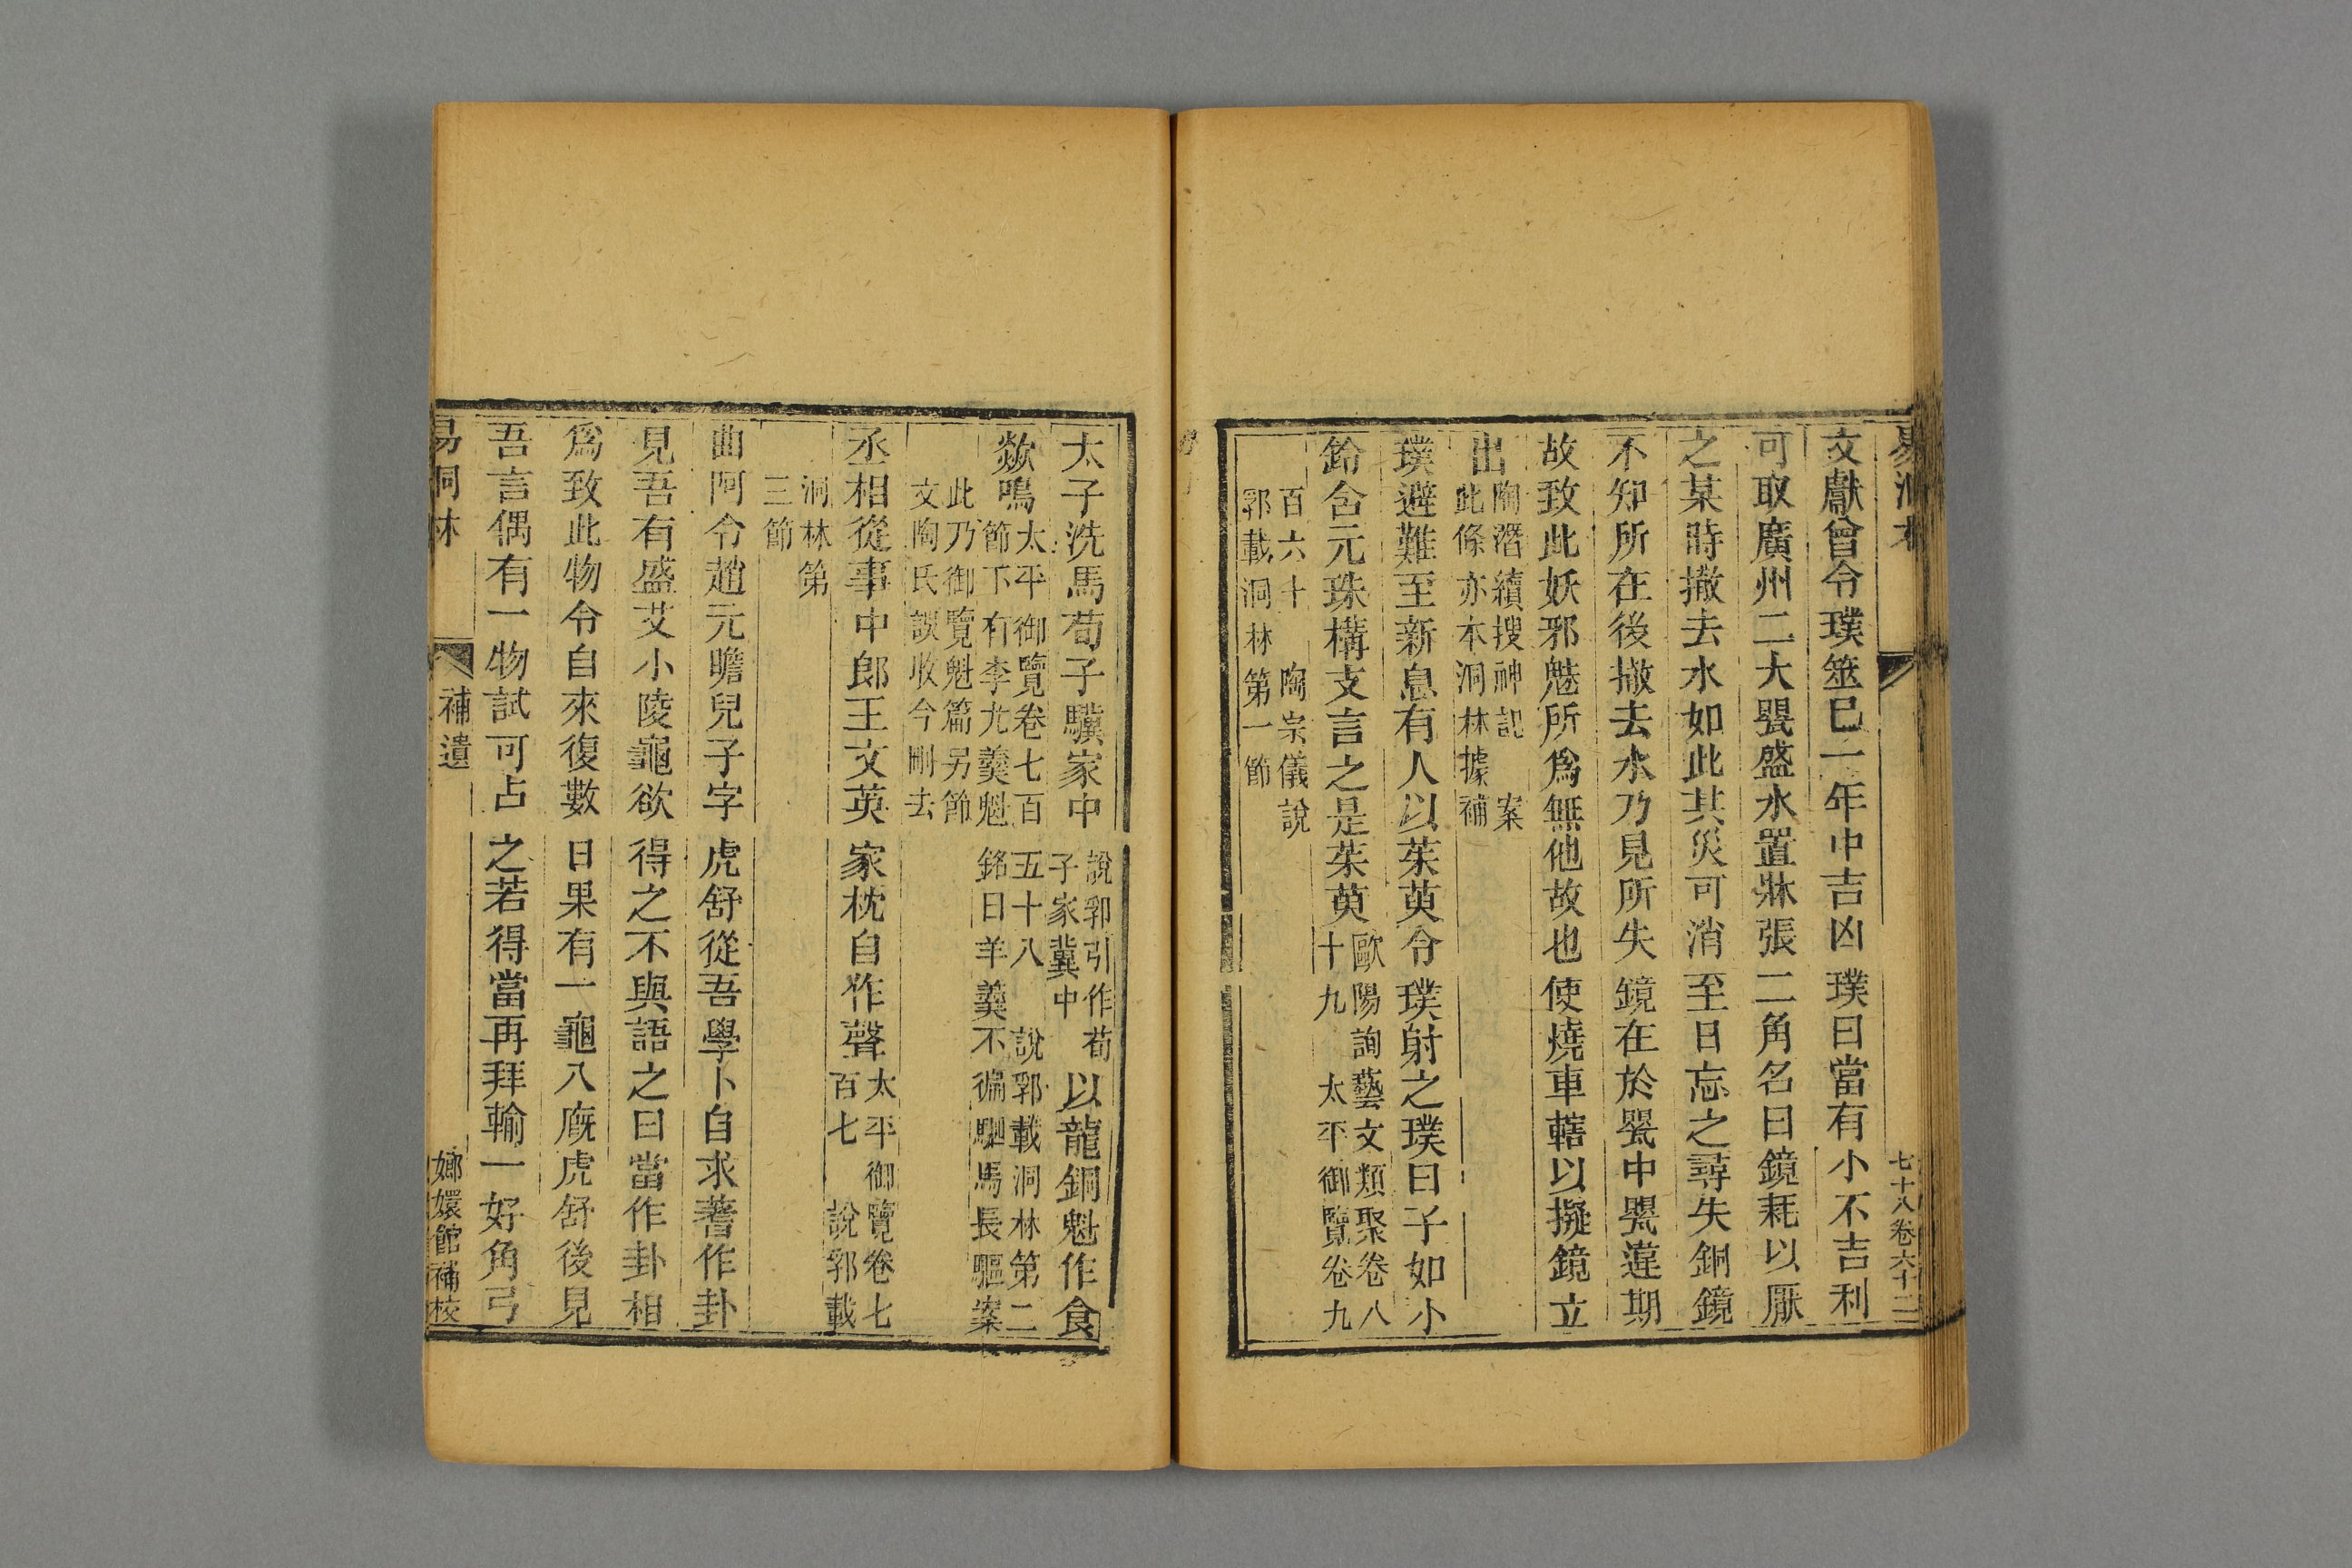 易洞林
七十八卷六十二
文獻曾令璞筮已一年中吉凶璞曰當有小不吉利
可取廣州二大甖盛水置牀張二角名曰鏡耗以厭
之某時撤去水如此其災可消至日忘之尋失銅鏡
不知所在後撤去水乃見所失鏡在於甖中甖違期
故致此妖邪魅所爲無他故也使燒車轄以擬鏡立
出陶潛續搜神記 案
此條亦本洞林據補
璞避難至新息有人以茱萸令璞射之璞曰子如小
鈴含元珠構文言之是茱萸歐陽詢藝文類聚卷八
十九 太平御覽卷九
百六十 陶宗儀說
郛載洞林第一節
太子洗馬荀子驥家中說郛引作荀
子家冀中以龍銅魁作食
歘鳴太平御覽卷七百五十八 說郛載洞林第二
節下有李尤羹魁銘曰羊羹不徧駟馬長驅案
此乃御覽魁篇另節
文陶氏誤收今刪去
丞相從事中郎王文英家枕自作聲太平御覽卷七
百七 說郛載
洞林第
三節
曲阿令趙元瞻兒子字虎舒從吾學卜自求蓍作卦
見吾有盛艾小陵龜欲得之不與語之曰當作卦相
爲致此物令自來復數日果有一龜入廐虎舒後見
吾言偶有一物試可占之若得當再拜輸一好角弓
易洞林
補遺
嫏嬛館補校